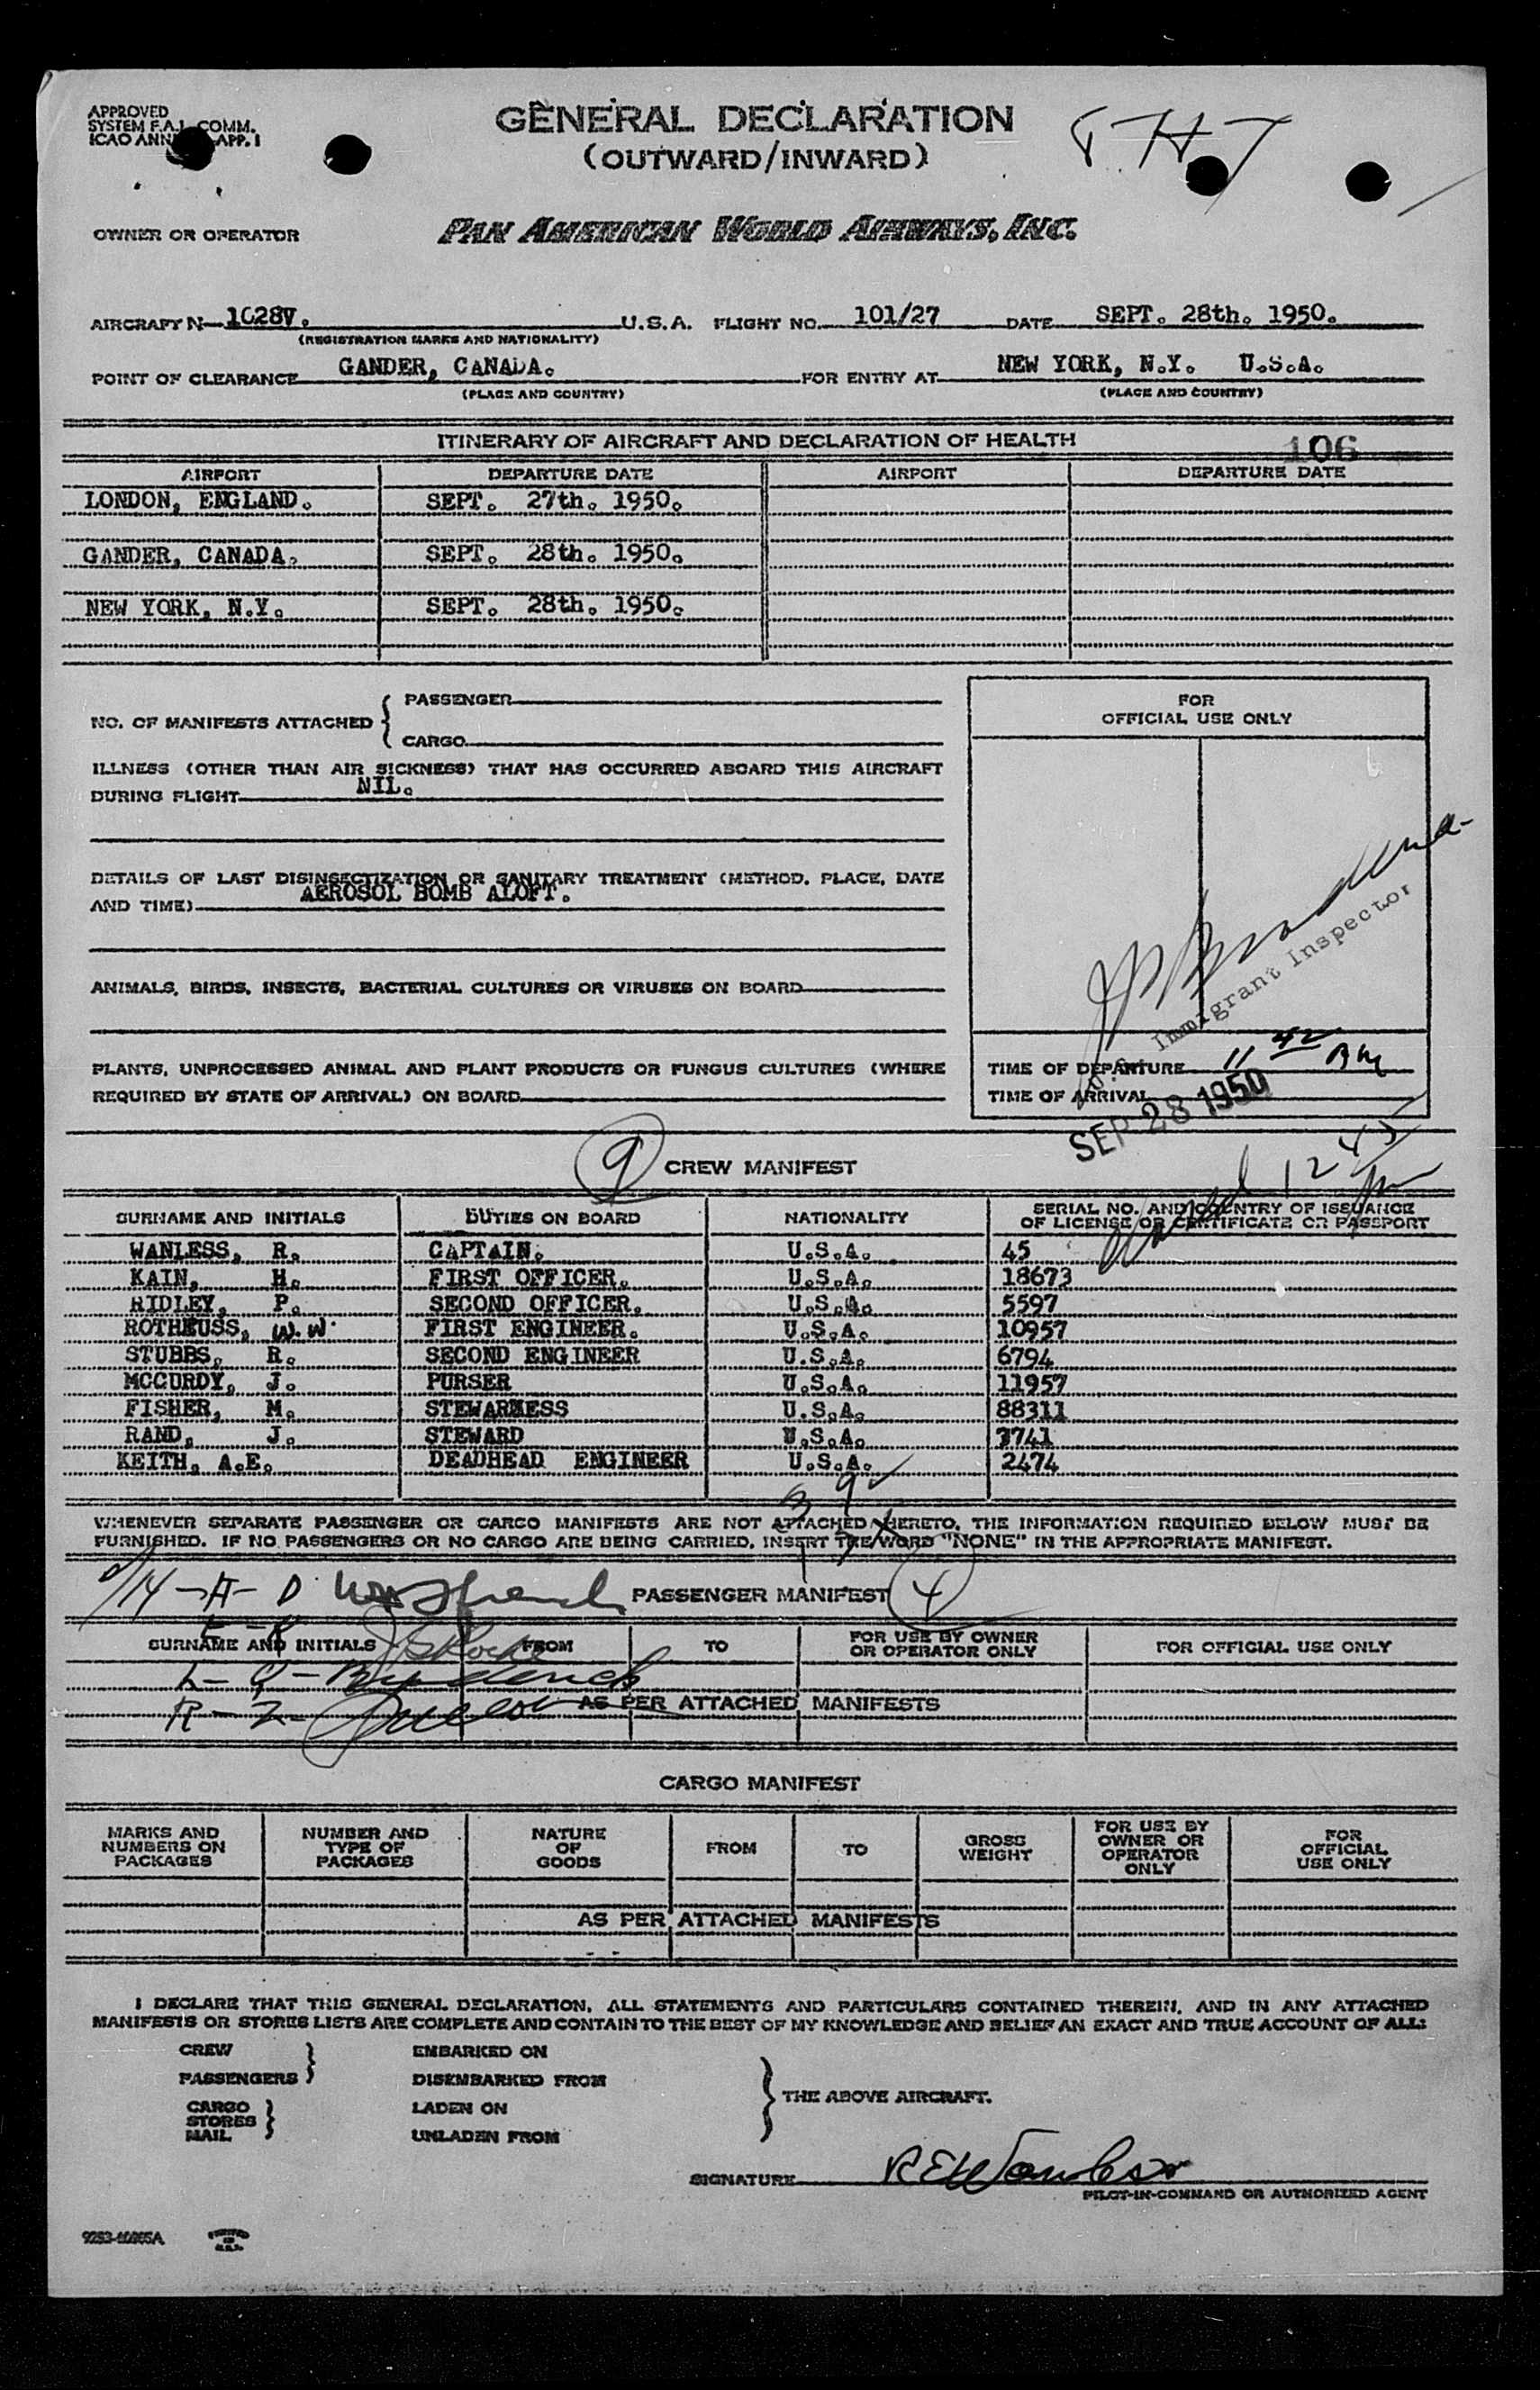 APPROVED
SYSTEM F.A.L. COMM.
ICAO ANN APP. 1
GENERAL DECLARATION
(OUTWARD/INWARD)
OWNER OR OPERATOR PAN AMERICAN WORLD AIRWAYS, INC.
AIRCRAFT N 1028V. U.S.A. FLIGHT NO. 101/27 DATE SEPT. 28th. 1950.
(REGISTRATION MARKS AND NATIONALITY)
POINT OF CLEARANCE GANDER, CANADA. FOR ENTRY AT NEW YORK, N.Y. U.S.A.
(PLACE AND COUNTRY) (PLACE AND COUNTRY)
ITINERARY OF AIRCRAFT AND DECLARATION OF HEALTH 106
AIRPORT DEPARTURE DATE AIRPORT DEPARTURE DATE
LONDON, ENGLAND. SEPT. 27th. 1950.
GANDER, CANADA. SEPT. 28th. 1950.
NEW YORK, N.Y. SEPT. 28th. 1950.
NO. OF MANIFESTS ATTACHED { PASSENGER
CARGO
FOR
OFFICIAL USE ONLY
ILLNESS (OTHER THAN AIR SICKNESS) THAT HAS OCCURRED ABOARD THIS AIRCRAFT
DURING FLIGHT NIL.
DETAILS OF LAST DISINSECTIZATION OR SANITARY TREATMENT (METHOD, PLACE, DATE
AND TIME) AEROSOL BOMB ALOFT.
ANIMALS, BIRDS, INSECTS, BACTERIAL CULTURES OR VIRUSES ON BOARD
Immigrant Inspector
PLANTS, UNPROCESSED ANIMAL AND PLANT PRODUCTS OR FUNGUS CULTURES (WHERE
REQUIRED BY STATE OF ARRIVAL) ON BOARD
TIME OF DEPARTURE 11 42 AM
TIME OF ARRIVAL
SEP 28 1950
9 CREW MANIFEST
SURNAME AND INITIALS DUTIES ON BOARD NATIONALITY SERIAL NO. AND COUNTRY OF ISSUANCE
OF LICENSE OR CERTIFICATE OR PASSPORT
WANLESS, R. CAPTAIN. U.S.A. 45
KAIN, H. FIRST OFFICER. U.S.A. 18673
RIDLEY, P. SECOND OFFICER. U.S.A. 5597
ROTHEUSS, W.W. FIRST ENGINEER. U.S.A. 10957
STUBBS, R. SECOND ENGINEER U.S.A. 6794
MCCURDY, J. PURSER U.S.A. 11957
FISHER, M. STEWARDESS U.S.A. 88311
RAND, J. STEWARD U.S.A. 3741
KEITH, A.E. DEADHEAD ENGINEER U.S.A. 2474
WHENEVER SEPARATE PASSENGER OR CARGO MANIFESTS ARE NOT ATTACHED HERETO, THE INFORMATION REQUIRED BELOW MUST BE
FURNISHED. IF NO PASSENGERS OR NO CARGO ARE BEING CARRIED, INSERT THE WORD "NONE" IN THE APPROPRIATE MANIFEST.
PASSENGER MANIFEST 4
SURNAME AND INITIALS FROM TO FOR USE BY OWNER
OR OPERATOR ONLY FOR OFFICIAL USE ONLY
AS PER ATTACHED MANIFESTS
CARGO MANIFEST
MARKS AND
NUMBERS ON
PACKAGES
NUMBER AND
TYPE OF
PACKAGES
NATURE
OF
GOODS
FROM
TO
GROSS
WEIGHT
FOR USE BY
OWNER OR
OPERATOR
ONLY
FOR
OFFICIAL
USE ONLY
AS PER ATTACHED MANIFESTS
I DECLARE THAT THIS GENERAL DECLARATION, ALL STATEMENTS AND PARTICULARS CONTAINED THEREIN, AND IN ANY ATTACHED
MANIFESTS OR STORES LISTS ARE COMPLETE AND CONTAIN TO THE BEST OF MY KNOWLEDGE AND BELIEF AN EXACT AND TRUE ACCOUNT OF ALL:
CREW EMBARKED ON
PASSENGERS DISEMBARKED FROM
THE ABOVE AIRCRAFT.
CARGO LADEN ON
STORES
MAIL UNLADEN FROM
SIGNATURE R E Wanless
PILOT-IN-COMMAND OR AUTHORIZED AGENT
PRINTED
IN
U.S.A.